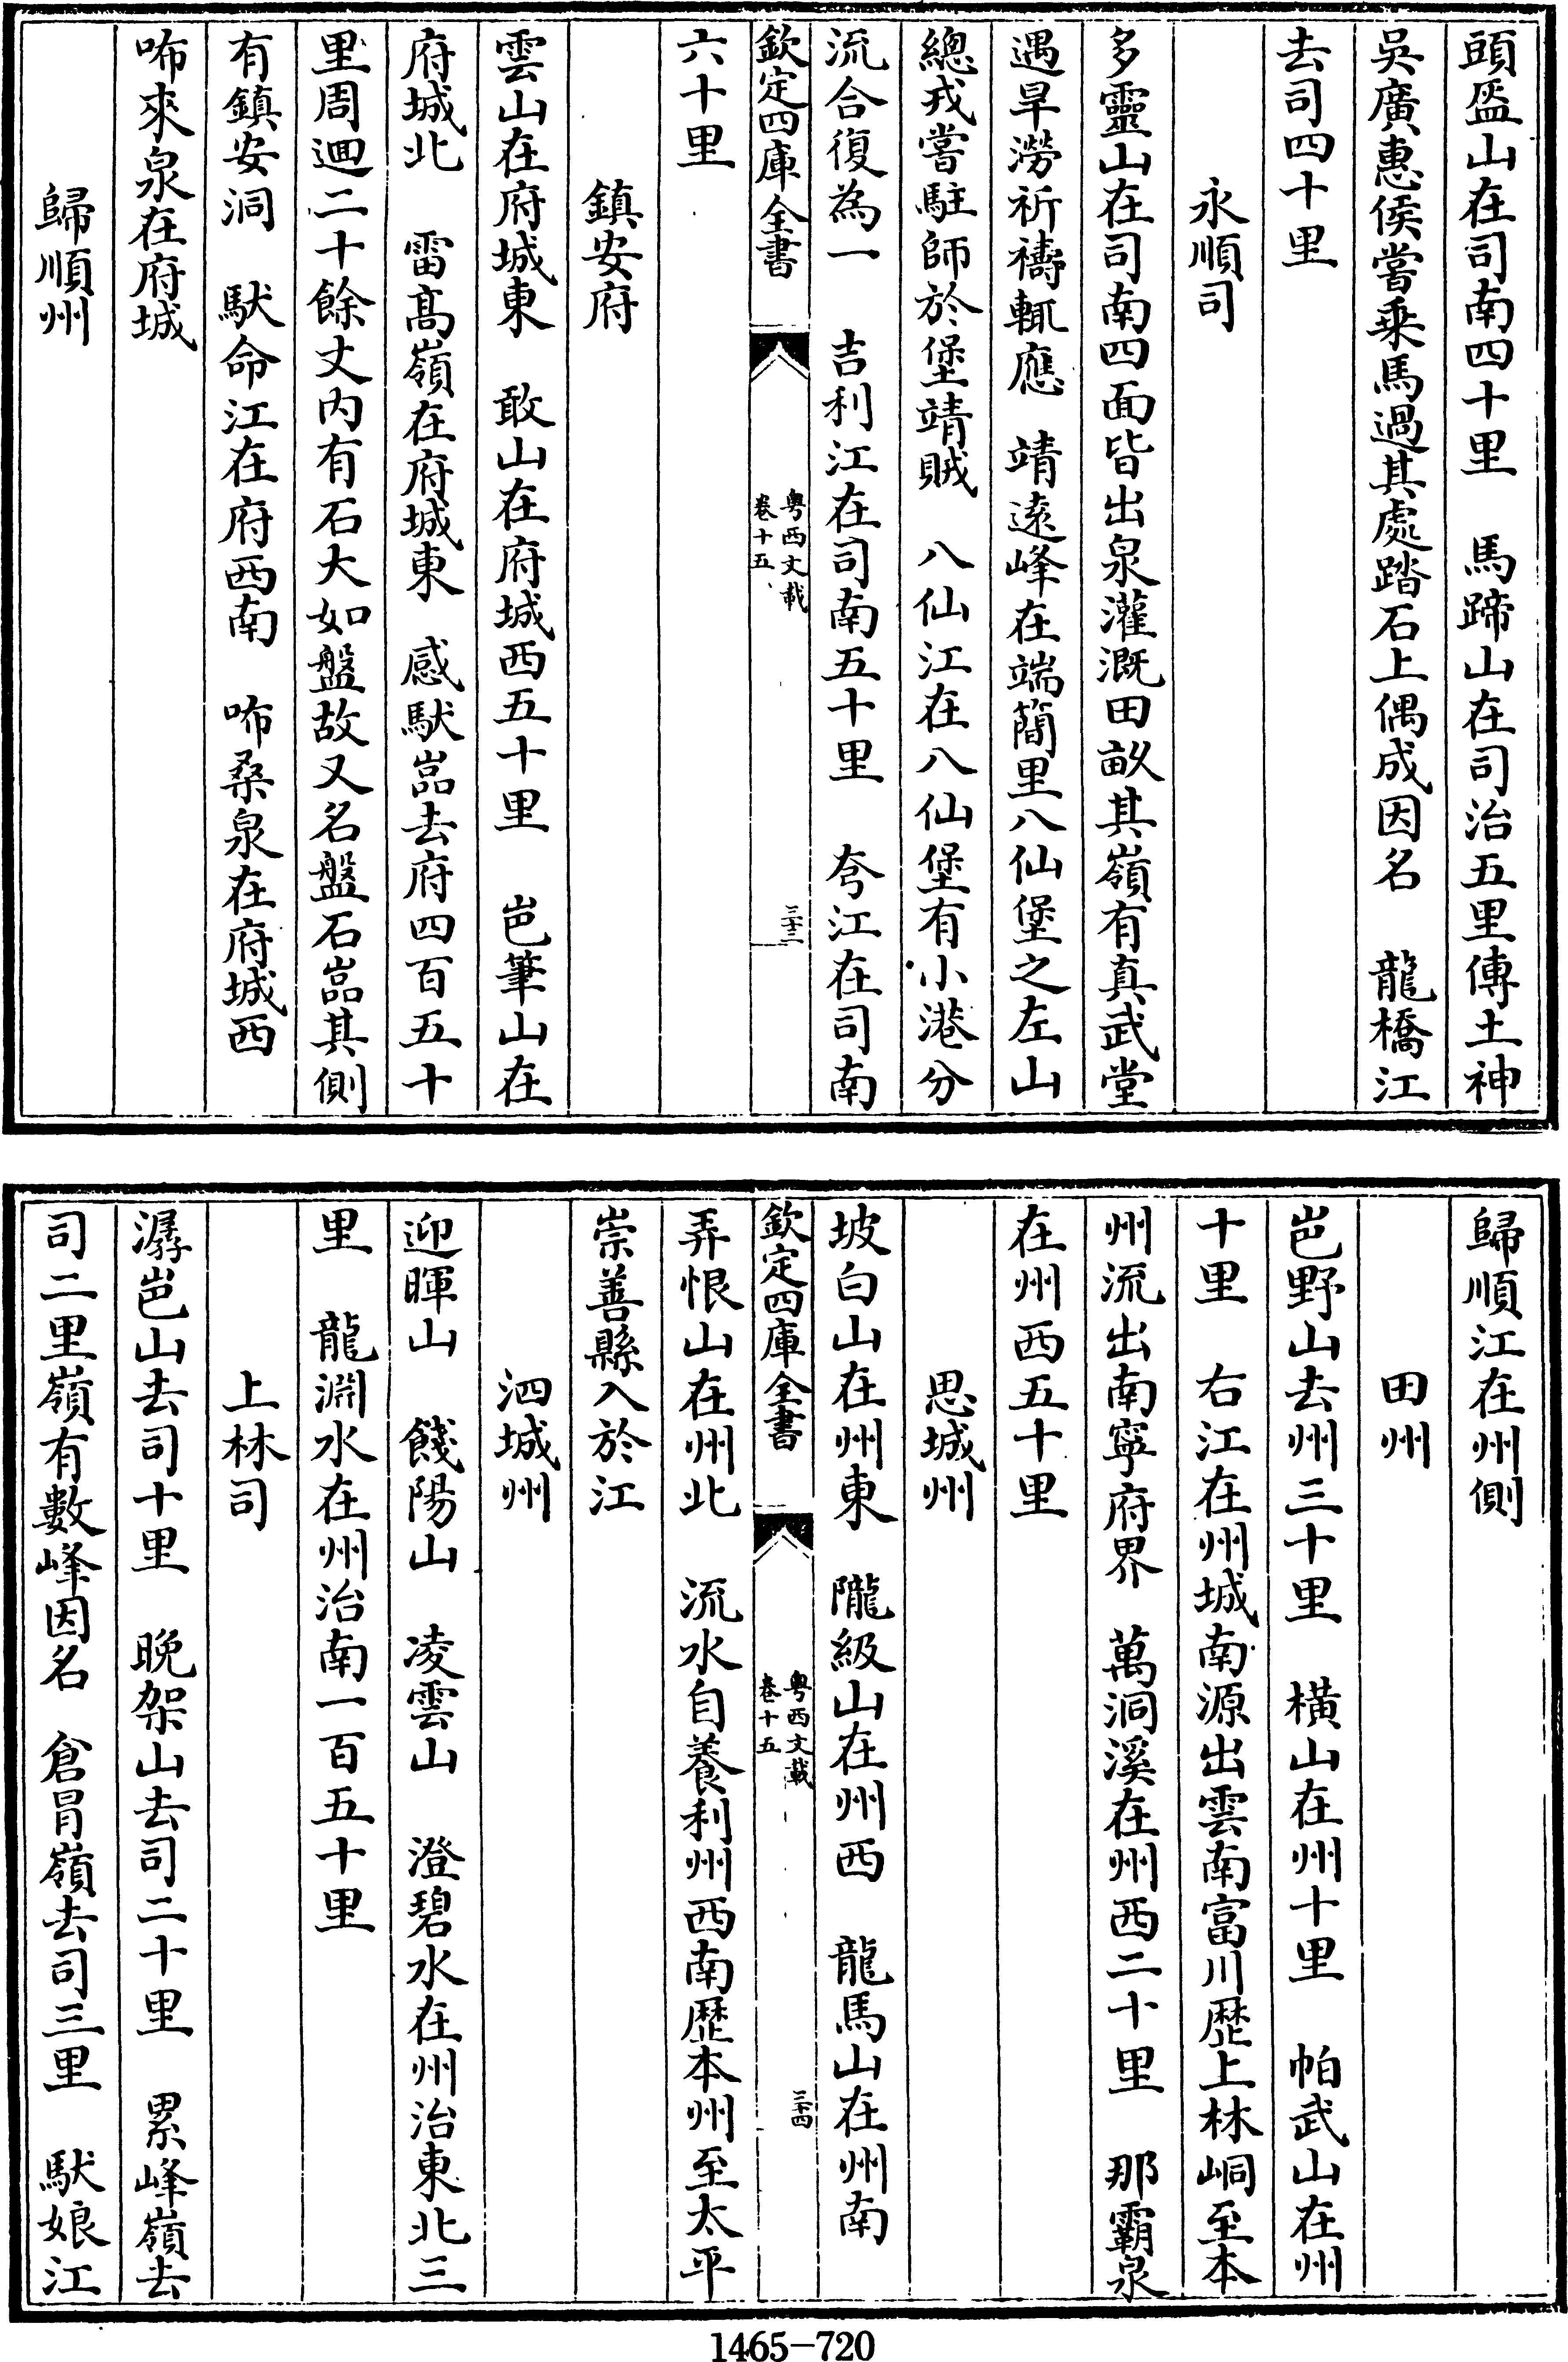 頭盔山在司南四十里　馬蹄山在司治五里傳土神
吳廣惠侯嘗乗馬過其處踏石上偶成因名　龍橋江
去司四十里
永順司
多靈山在司南四面皆出泉灌溉田畝其嶺有真武堂
遇旱澇祈禱輒應　靖遠峰在端簡里八仙堡之左山
總戎嘗駐師於堡靖賊　八仙江在八仙堡有小港分
流合復為一　吉利江在司南五十里　夸江在司南
欽定四庫全書　粤西文載卷十五　三十三
六十里
鎮安府
雲山在府城東　敢山在府城西五十里　岜筆山在
府城北　雷髙嶺在府城東　感馱嵓去府四百五十
里周迴二十餘丈内有石大如盤故又名盤石嵓其側
有鎮安洞　馱命江在府西南　咘桑泉在府城西
咘來泉在府城
歸順州
歸順江在州側
田州
岜野山去州三十里　橫山在州十里　帕武山在州
十里　右江在州城南源出雲南富川歴上林峒至本
州流出南寧府界　萬洞溪在州西二十里　那霸泉
在州西五十里
思城州
坡白山在州東　隴級山在州西　龍馬山在州南
欽定四庫全書　粤西文載卷十五　三十四
弄恨山在州北　流水自養利州西南歴本州至太平
崇善縣入於江
泗城州
迎暉山　餞陽山　凌雲山　澄碧水在州治東北三
里　龍淵水在州治南一百五十里
上林司
潺岜山去司十里　晚架山去司二十里　累峰嶺去
司二里嶺有數峰因名　倉冐嶺去司三里　馱娘江
1465-720